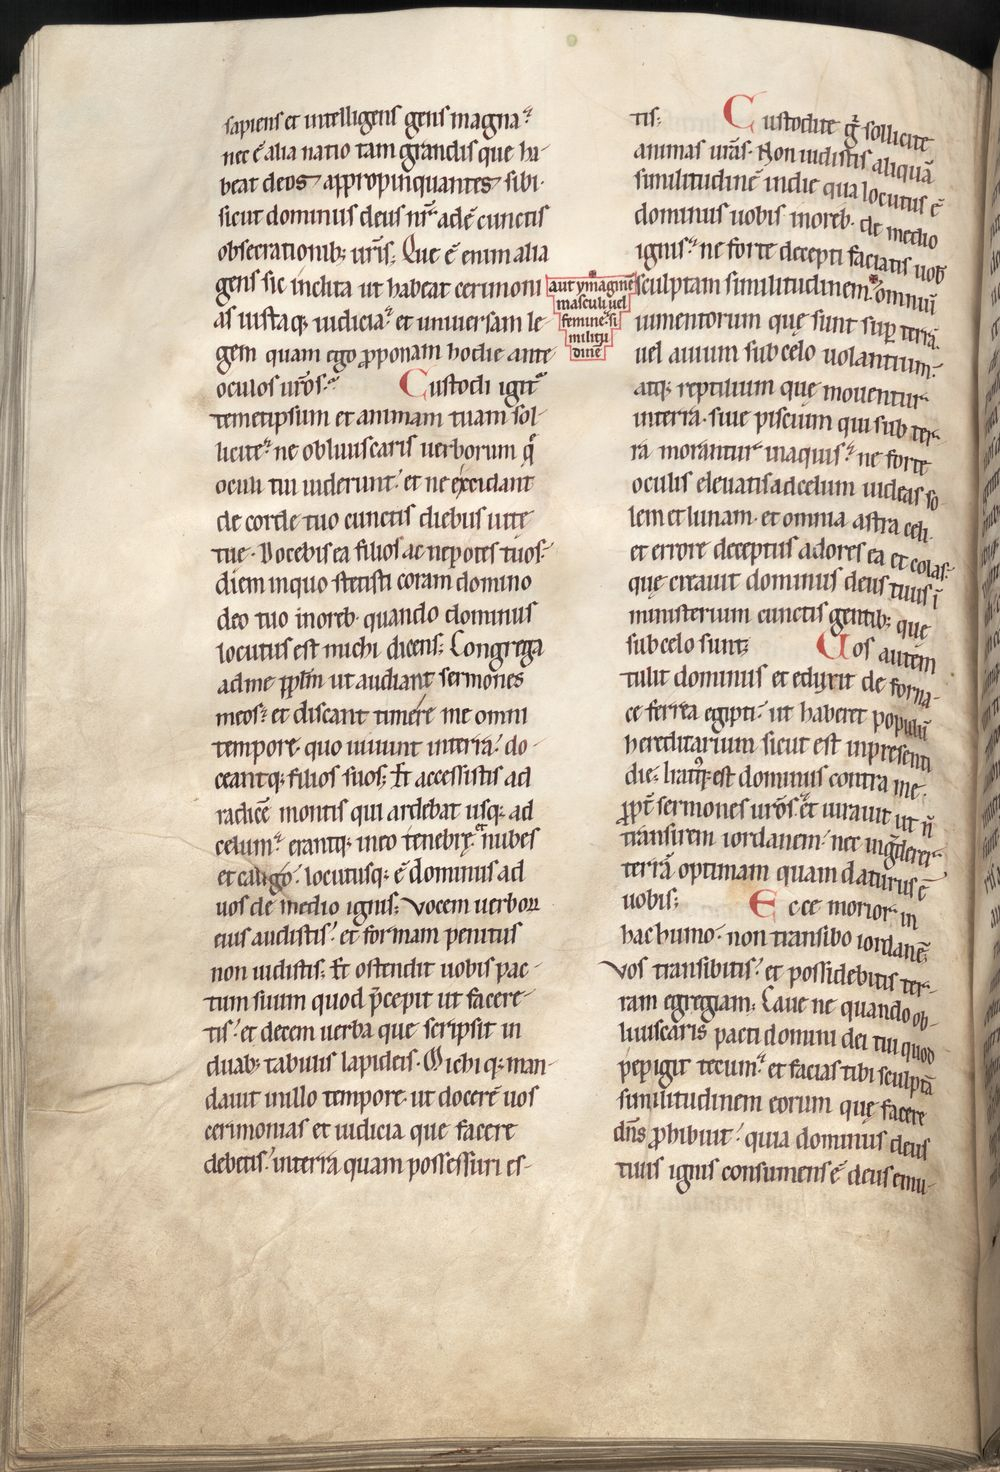 sapiens et intelligens gens magna.
nec ē alia natio tam grandis que ha-
beat deos appropinquantes sibi.
sicut dominus deus nr̄ adē cunctis
obsecrationib; uris̄; Que ē enim alia
gens sic inclita ut habeat cerimoni
as iustaq; iudicia. et uniuersam le-
gem quam ego ꝓponam hodie ante
oculos uros̄. Custodi igit᷑
temetipsum et animam tuam sol-
licite. ne obliuiscaris uerborum q̄
oculi tui uiderunt. et ne excidant
de corde tuo cunctis diebus uitę
tuę. Docebis ea filios ac nepotes tuos.
diem inquo stetisti coram domino
deo tuo inoreb. quando dominus
locutus est michi dicens; Congrega
ad me ppl̄m ut audiant sermones
meos. et discant timere me omni
tempore. quo uiuunt interra. do-
ceantq; filios suos; Et accessistis ad
radicē montis qui ardebat usq; ad
celum. erantq; ineo tenebrę. et nubes
et caligo. locutusq; ē dominus ad
uos de medio ignis; Vocem uerboꝝ
eius audistis. et formam penitus
non uidistis; Et ostendit uobis pac-
tum suum quod p̄cepit ut facere-
tis. et decem uerba que scripsit in
duab; tabulis lapideis. Michi q; man-
dauit inillo tempore. ut docerē uos
cerimonias et iudicia que facere
debetis. interra quam possessuri es-
tis; Custodite g̅ sollicite
animas uras̄. Non uidistis aliquā
similitudinē indie qua locutus ē
dominus uobis inoreb. de medio
ignis. ne forte decepti faciatis uob
sculptam similitudinem. omniū
aut ymaginē
masculi uel
femine. si
militu
dinē
iumentorum quę sunt sup̄ terrā.
uel auium sub celo uolantium.
atq; reptilium quę mouentur
interra. siue piscium qui sub ter-
ra morantur inaquis. ne forte
oculis eleuatis adcelum uideas so
lem et lunam. et omnia astra celi.
et errore deceptus adores ea et colas.
quę creauit dominus deus tuus ī
ministerium cunctis gentib; quę
sub celo sunt; Uos autem
tulit dominus et eduxit de forna-
ce ferrea egipti. ut haberet populū
hereditarium sicut est inpresenti
die. Iratusq; est dominus contra me.
ꝓpt̄ sermones uros̄. et iurauit ut n̄
transirem iordanem. nec ingrederer
terrā optimam quam daturus ē
uobis; Ecce morior in
hac humo. non transibo iordanē;
Vos transibitis. et possidebitis ter-
ram egregiam; Caue ne quando ob-
liuiscaris pacti domini dei tui quod
pepigit tecum. et facias tibi sculptā
similitudinem eorum quę facere
dn̄s ꝓhibuit. quia dominus deus
tuus ignis consumens ē. deus emu-